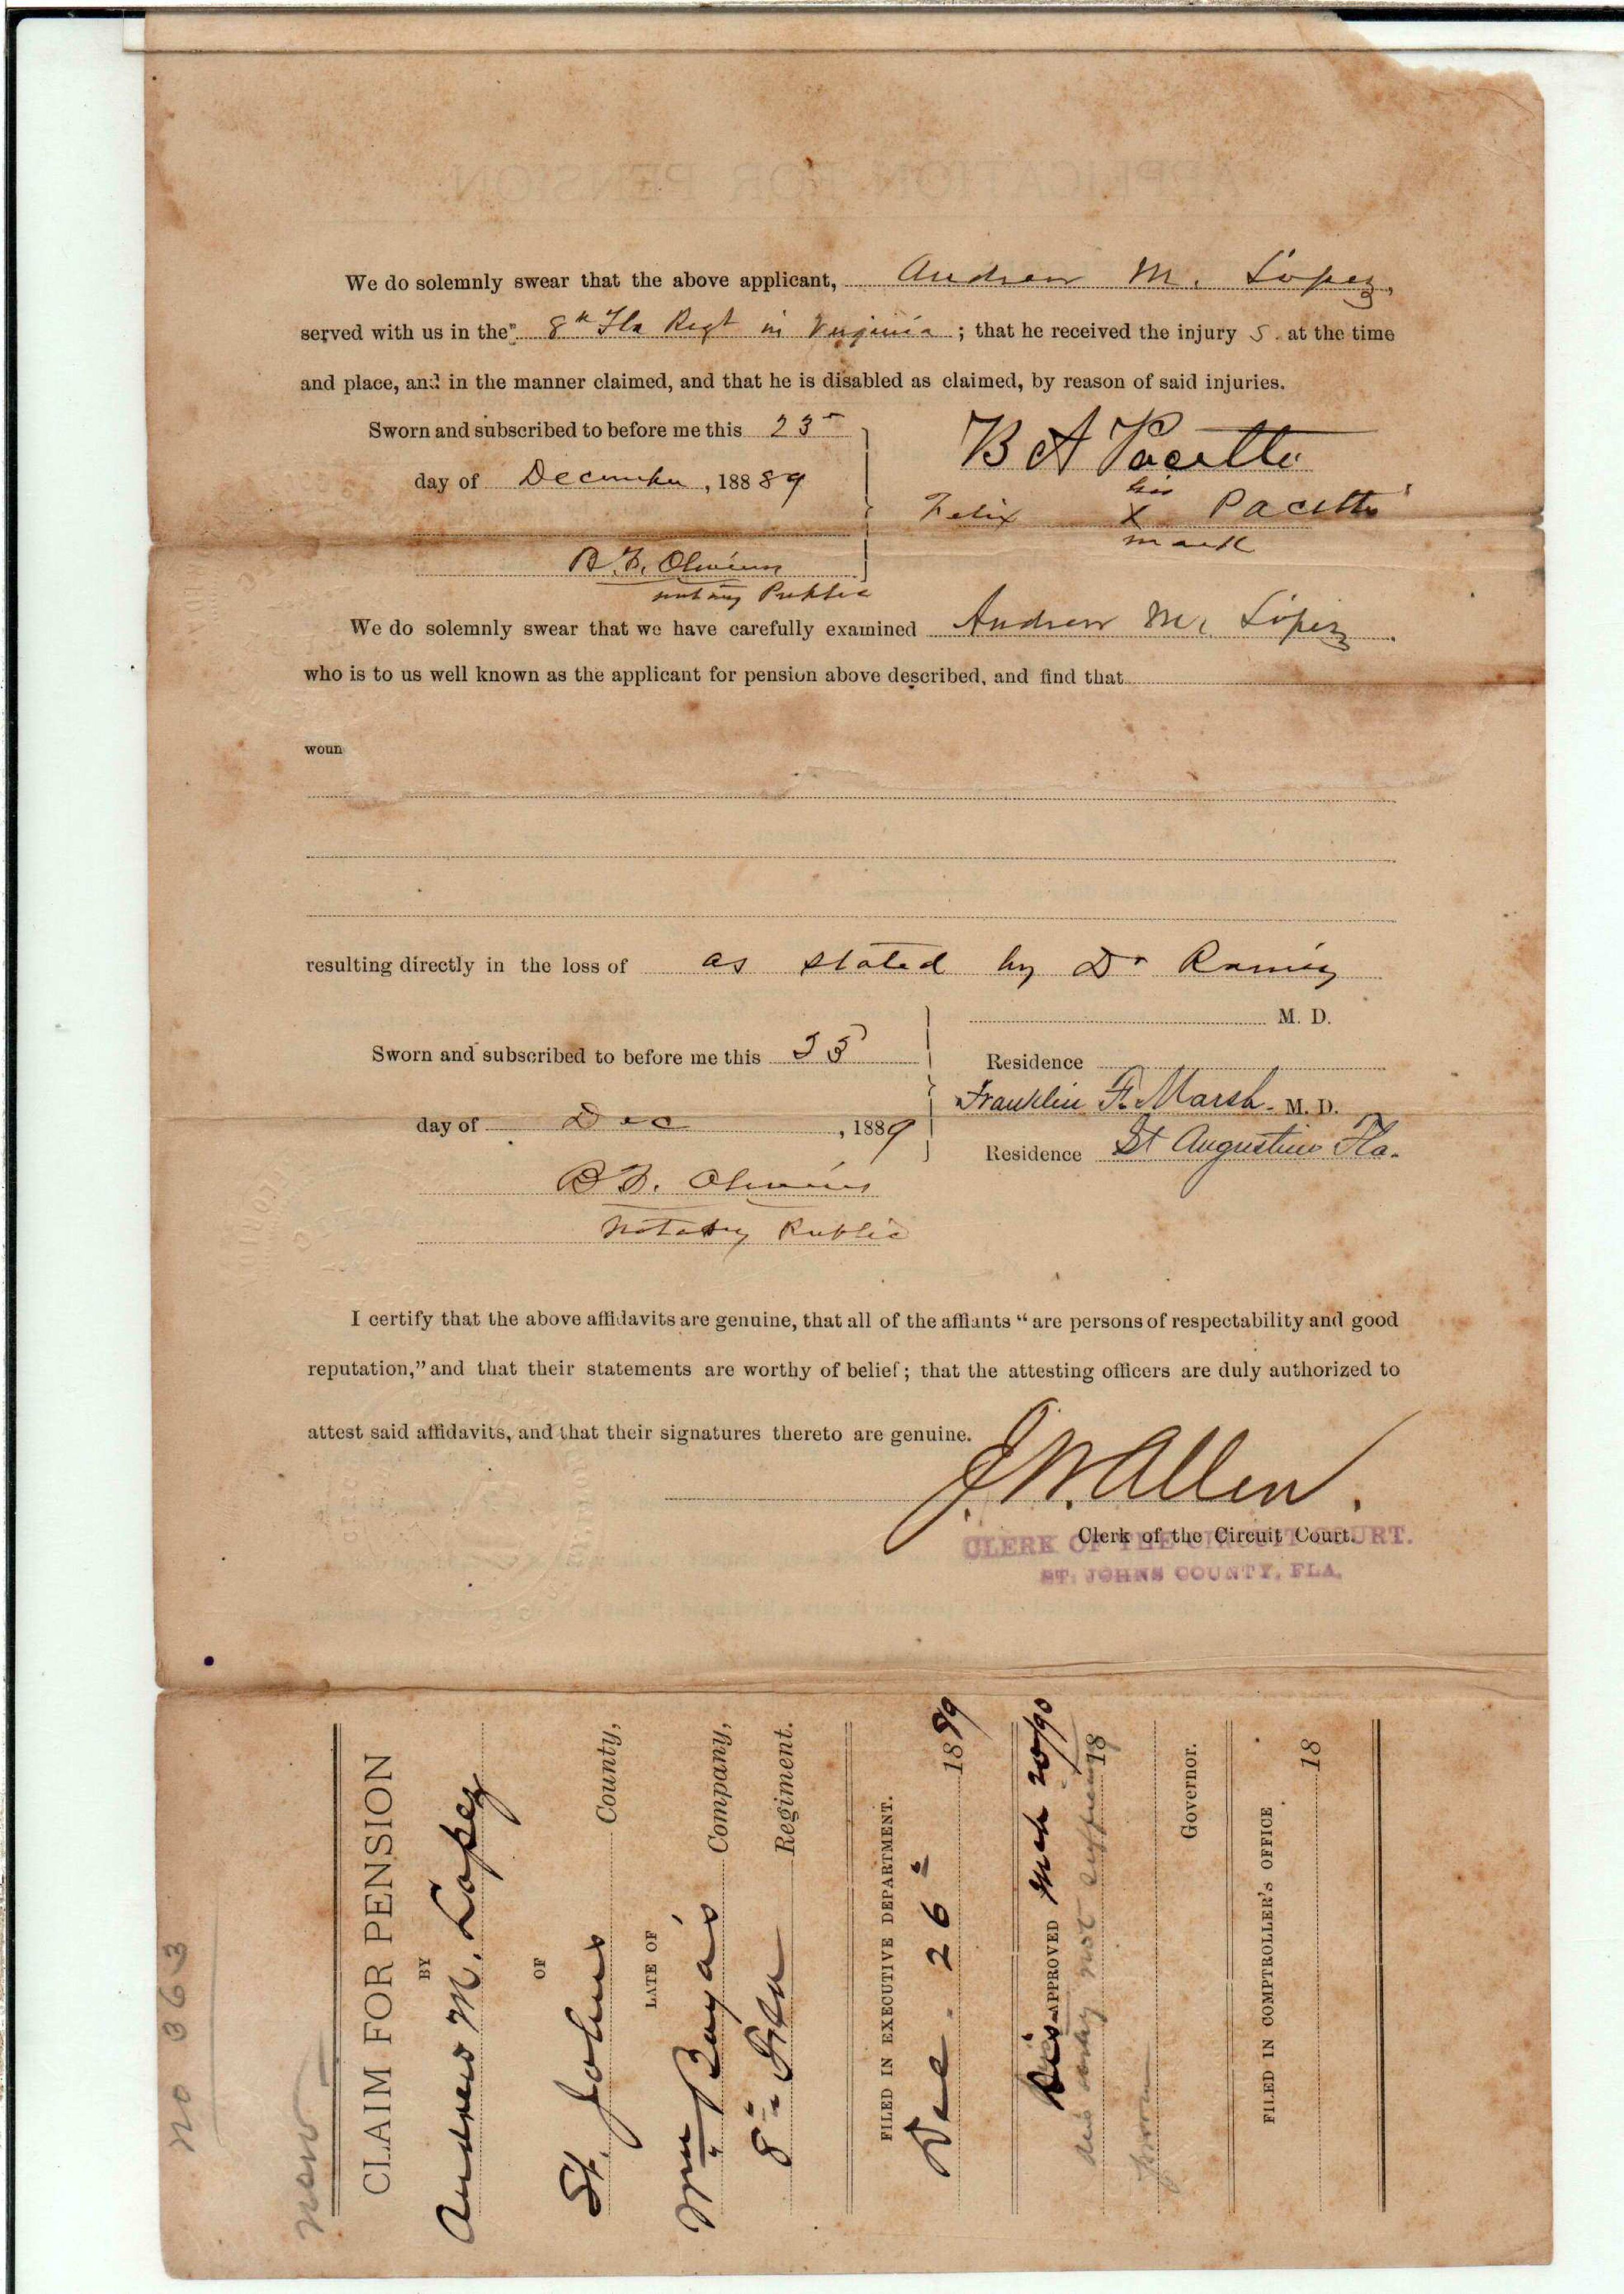 APPLICATION FOR PENSION
We do solemnly swear that the above applicant, Andrew M. Lopez,
served with us in the 8th Fla Regt in Virginia ; that he received the injury s at the time
and place, and in the manner claimed, and that he is disabled as claimed, by reason of said injuries.
Sworn and subscribed to before me this 23
day of December, 188 89
B A Pacetti
Felix his X mark Pacetti
B. F. Oliveros
Notary Public
We do solemnly swear that we have carefully examined Andrew M. Lopez
who is to us well known as the applicant for pension above described, and find that
woun
resulting directly in the loss of as stated by Dr
M. D.
Sworn and subscribed to before me this 23
Residence
Franklin F. Marsh M. D.
day of Dec, 1889
Residence St Augustine Fla.
B F. Oliveros
Notary Public
I certify that the above affidavits are genuine, that all of the affiants “are persons of respectability and good
reputation,” and that their statements are worthy of belief; that the attesting officers are duly authorized to
attest said affidavits, and that their signatures thereto are genuine.
J. W. Allen.
Clerk of the Circuit Court.
CLERK OF THE CIRCUIT COURT.
ST. JOHNS COUNTY, FLA.
No 363
new
CLAIM FOR PENSION
BY
Andrew M. Lopez
OF
St. Johns County,
LATE OF
Wm Baya's Company,
8" Fla Regiment.
FILED IN EXECUTIVE DEPARTMENT.
Dec. 26 1889
Dis-APPROVED Mch 20/90
18
not
Governor.
FILED IN COMPTROLLER'S OFFICE
18